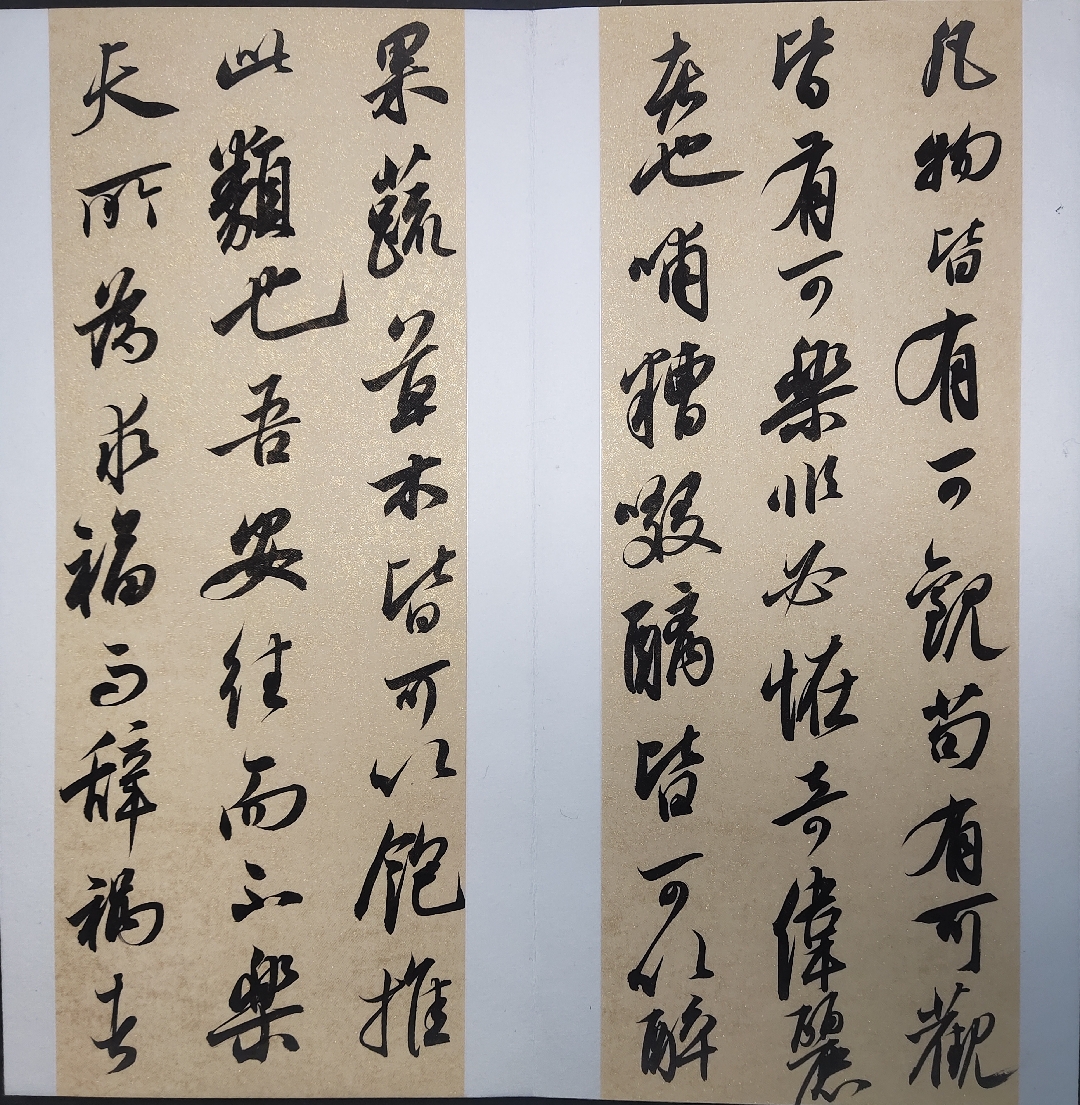 凡物皆有可觀苟有可觀
皆有可樂非必恠奇偉麗
者也哺糟啜醨皆可以醉
果蔬草木皆可以飽推
此類也吾安往而不樂
夫所為求福而辭禍者